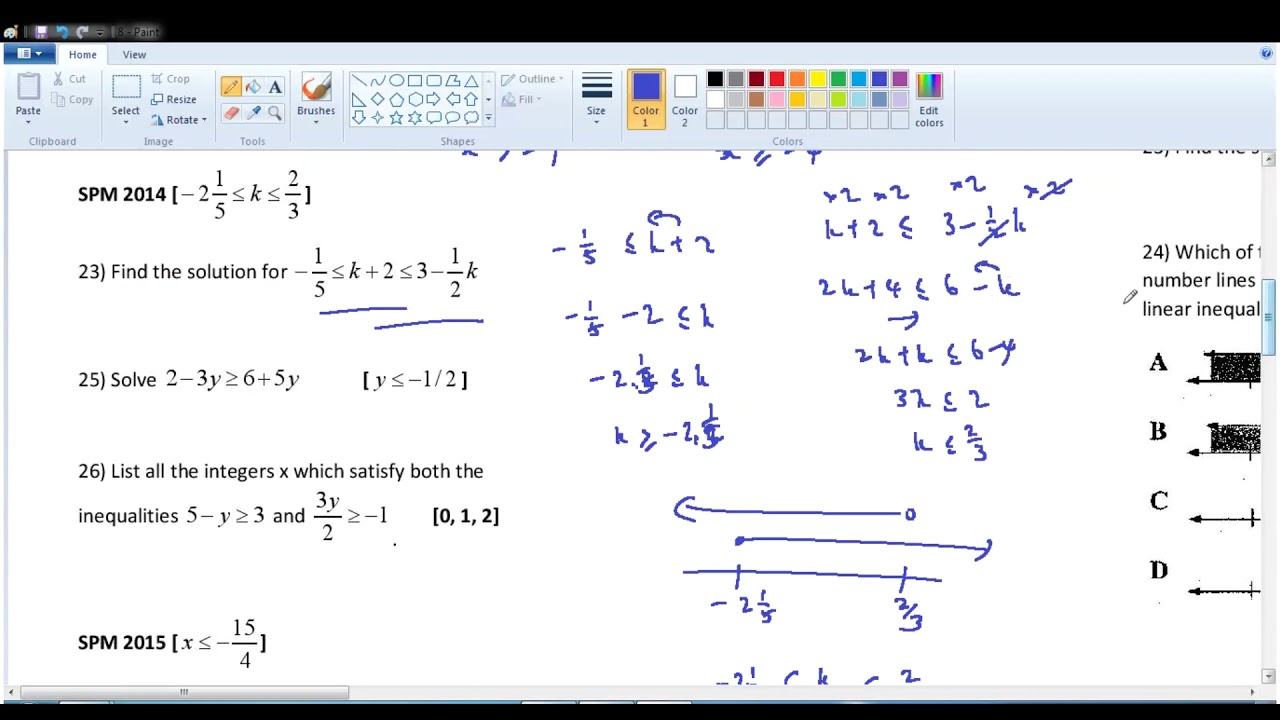 8 - Paint
Home View
Paste
Cut
Copy
Clipboard
Select
Crop
Resize
Rotate
Image
A
Tools
Brushes
Outline
Fill
Shapes
Size
Color 1
Color 2
Edit colors
Colors
SPM 2014 [−2 1/5 ≤ k ≤ 2/3]
23) Find the solution for −1/5 ≤ k + 2 ≤ 3 − 1/2 k
25) Solve 2 − 3y ≥ 6 + 5y [ y ≤ −1/2 ]
26) List all the integers x which satisfy both the
inequalities 5 − y ≥ 3 and 3y/2 ≥ −1 [0, 1, 2]
SPM 2015 [ x ≤ −15/4 ]
−1/5 ≤ k + 2
−1/5 − 2 ≤ k
−2 1/5 ≤ k
k ≥ −2 1/5
×2 ×2 ×2 ×2
k + 2 ≤ 3 − 1/2 k
2k + 4 ≤ 6 − k
2k + k ≤ 6 − 4
3k ≤ 2
k ≤ 2/3
−2 1/5 2/3
24) Which of
number lines
linear inequal
A
B
C
D